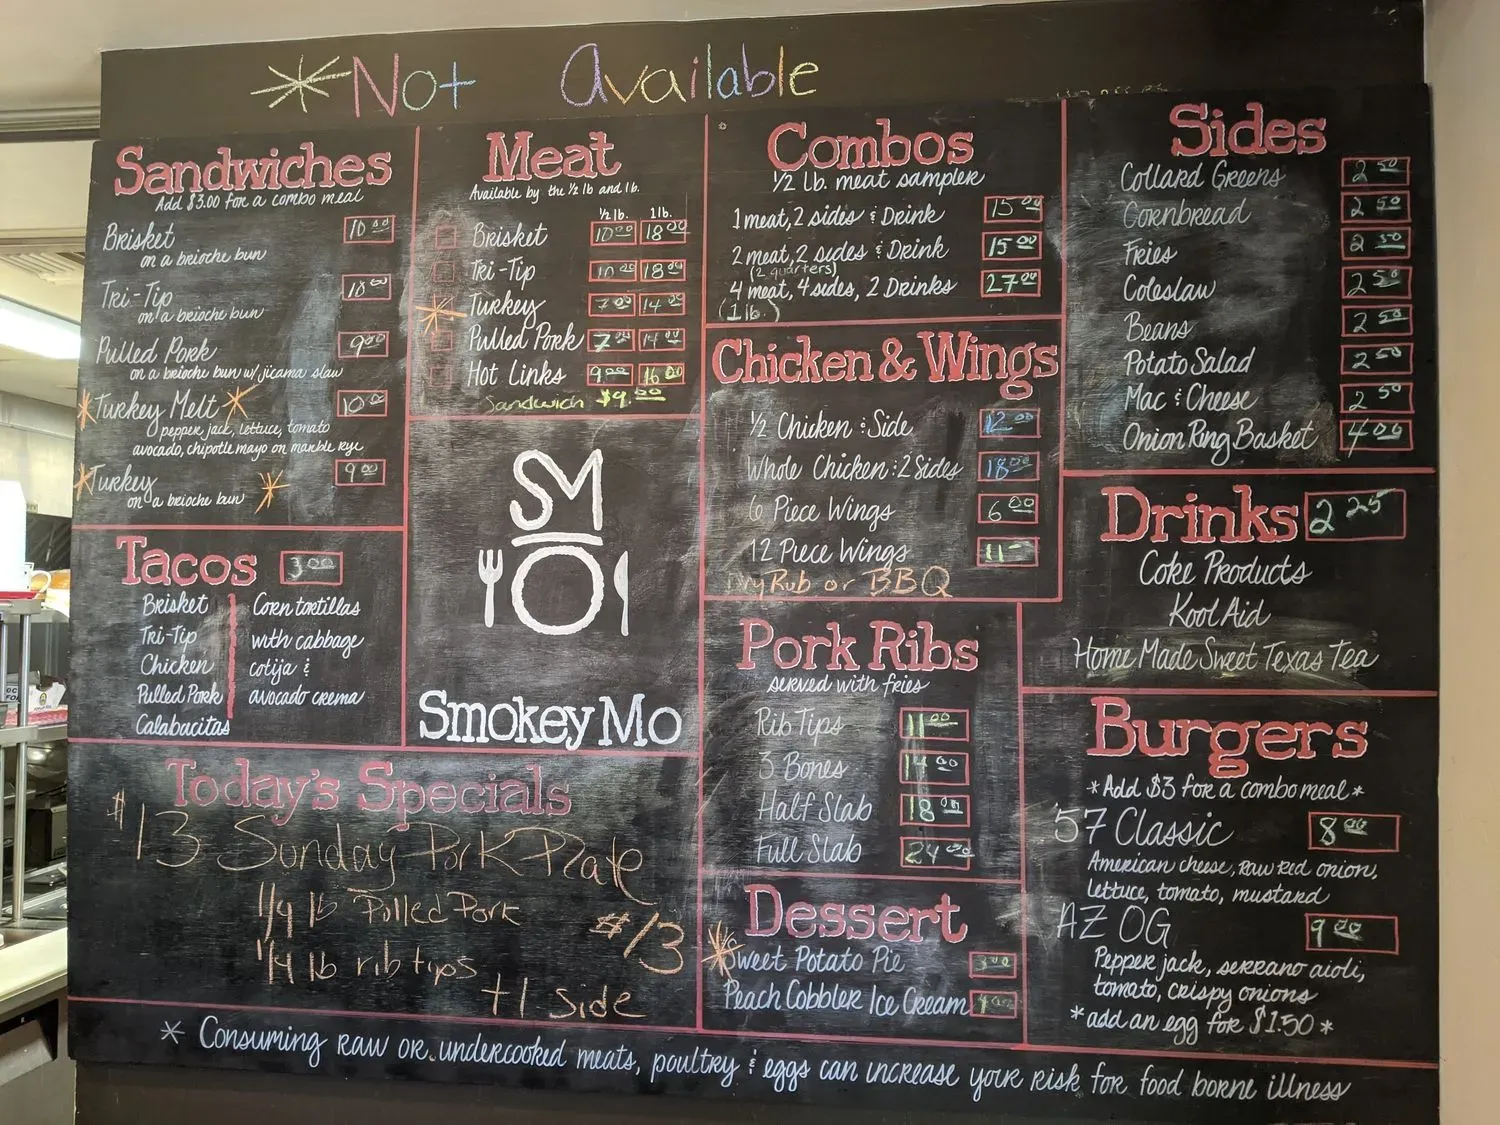 *Not Available
Sandwiches
Add $3.00 for a combo meal
Brisket 10.00
on a brioche bun
Tri-Tip 10.00
on a brioche bun
Pulled Pork 9.00
on a brioche bun w/ jicama slaw
*Turkey Melt* 10.00
pepper jack, lettuce, tomato
avocado, chipotle mayo on marble rye
*Turkey 9.00
on a brioche bun *
Tacos 3.00
Brisket
Tri-Tip
Chicken
Pulled Pork
Calabacitas
Corn tortillas
with cabbage
cotija &
avocado crema
Meat
Available by the 1/2 lb and 1 lb.
1/2 lb. 1 lb.
Brisket 10.00 18.00
Tri-Tip 10.00 18.00
* Turkey 7.00 14.00
Pulled Pork 7.00 14.00
Hot Links 9.00 16.00
Sandwich $9.00
SM
Smokey Mo
Today's Specials
$13 Sunday Pork Plate
1/4 lb Pulled Pork
1/4 lb rib tips
+1 side
$13
Combos
1/2 lb. meat sampler
1 meat, 2 sides & Drink 15.00
2 meat, 2 sides & Drink 15.00
(2 quarters)
4 meat, 4 sides, 2 Drinks 27.00
(1 lb)
Chicken & Wings
1/2 Chicken & Side 12.00
Whole Chicken : 2 Sides 18.00
6 Piece Wings 6.00
12 Piece Wings 11-
Dry Rub or BBQ
Pork Ribs
served with fries
Rib Tips 11.00
3 Bones 14.00
Half Slab 18.00
Full Slab 24.00
Dessert
*Sweet Potato Pie 3.00
Peach Cobbler Ice Cream 4.00
Sides
Collard Greens 2.50
Cornbread 2.50
Fries 2.50
Coleslaw 2.50
Beans 2.50
Potato Salad 2.50
Mac & Cheese 2.50
Onion Ring Basket 4.00
Drinks 2.25
Coke Products
Kool Aid
Home Made Sweet Texas Tea
Burgers
*Add $3 for a combo meal*
57 Classic 8.00
American cheese, raw red onion,
lettuce, tomato, mustard
AZ OG 9.00
Pepper jack, serrano aioli,
tomato, crispy onions
*add an egg for $1.50*
* Consuming raw or undercooked meats, poultry & eggs can increase your risk for food borne illness